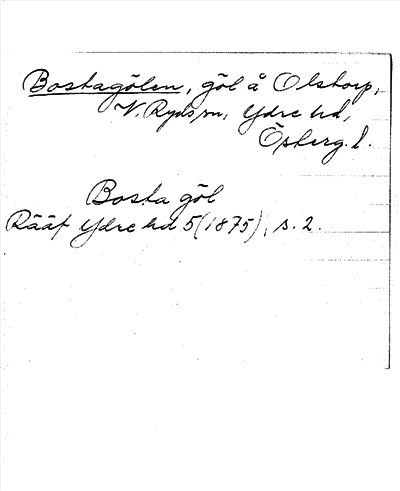 Bostagölen, göl å Olstorp,
V. Ryds sn, Ydre hd,
Östergl.
Bosta göl
Rääf Ydre hd 5 (1875), s. 2.